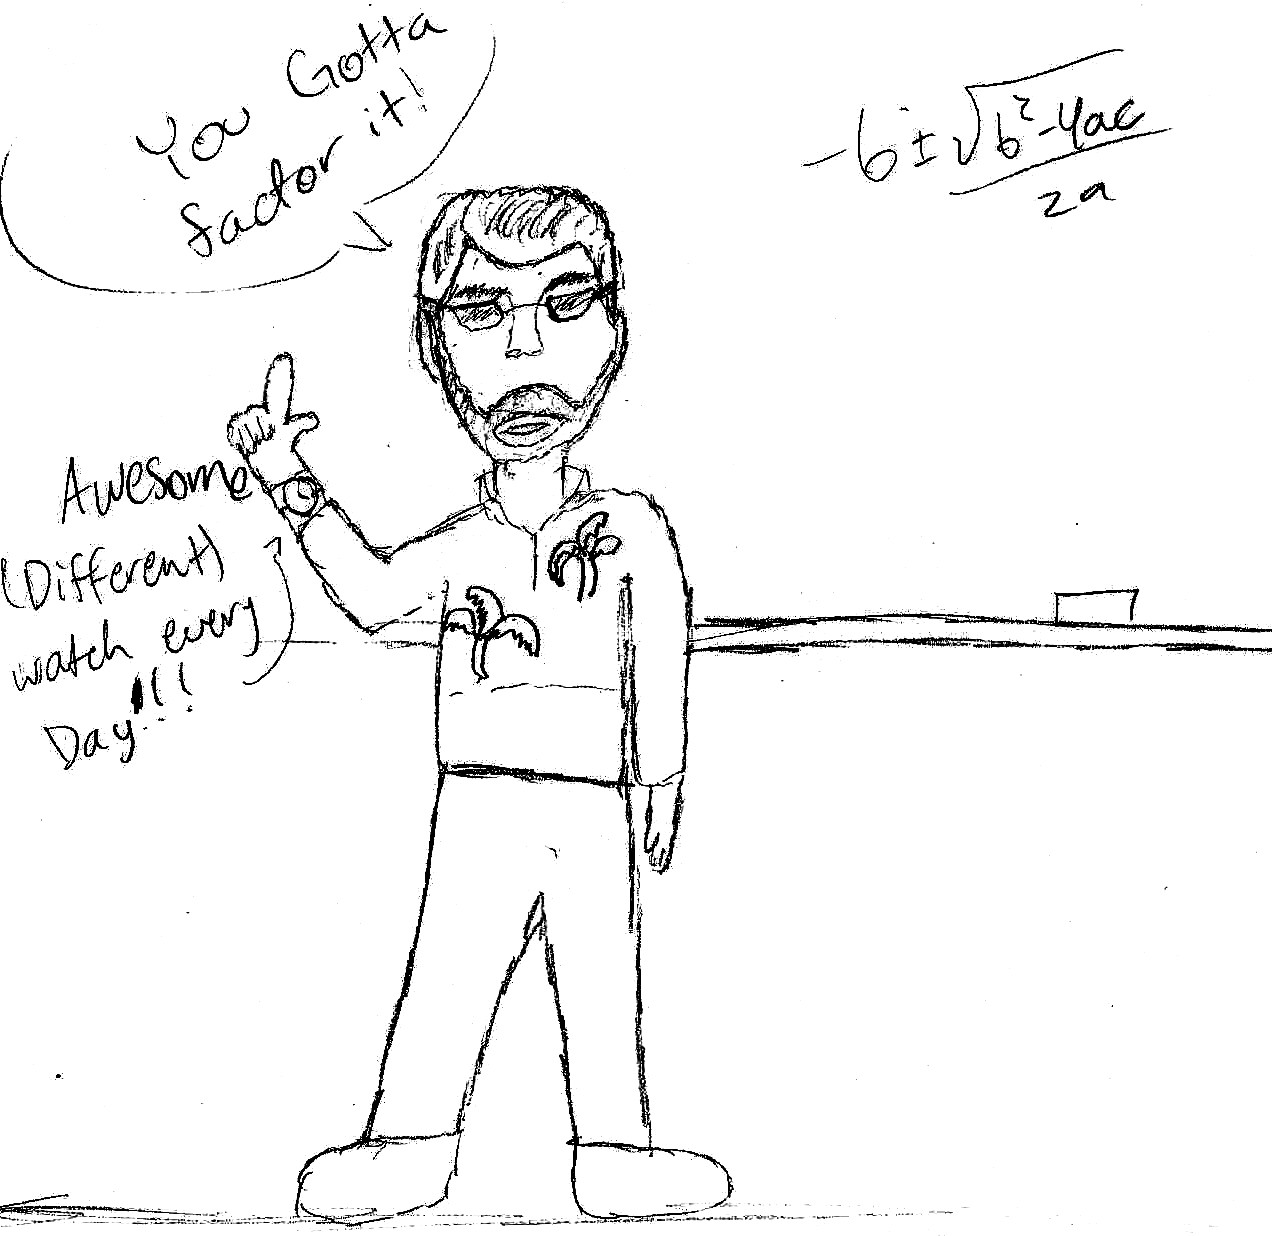 You Gotta
factor it!
-b ± √b²-4ac
2a
Awesome
(Different)
watch every
Day!!!